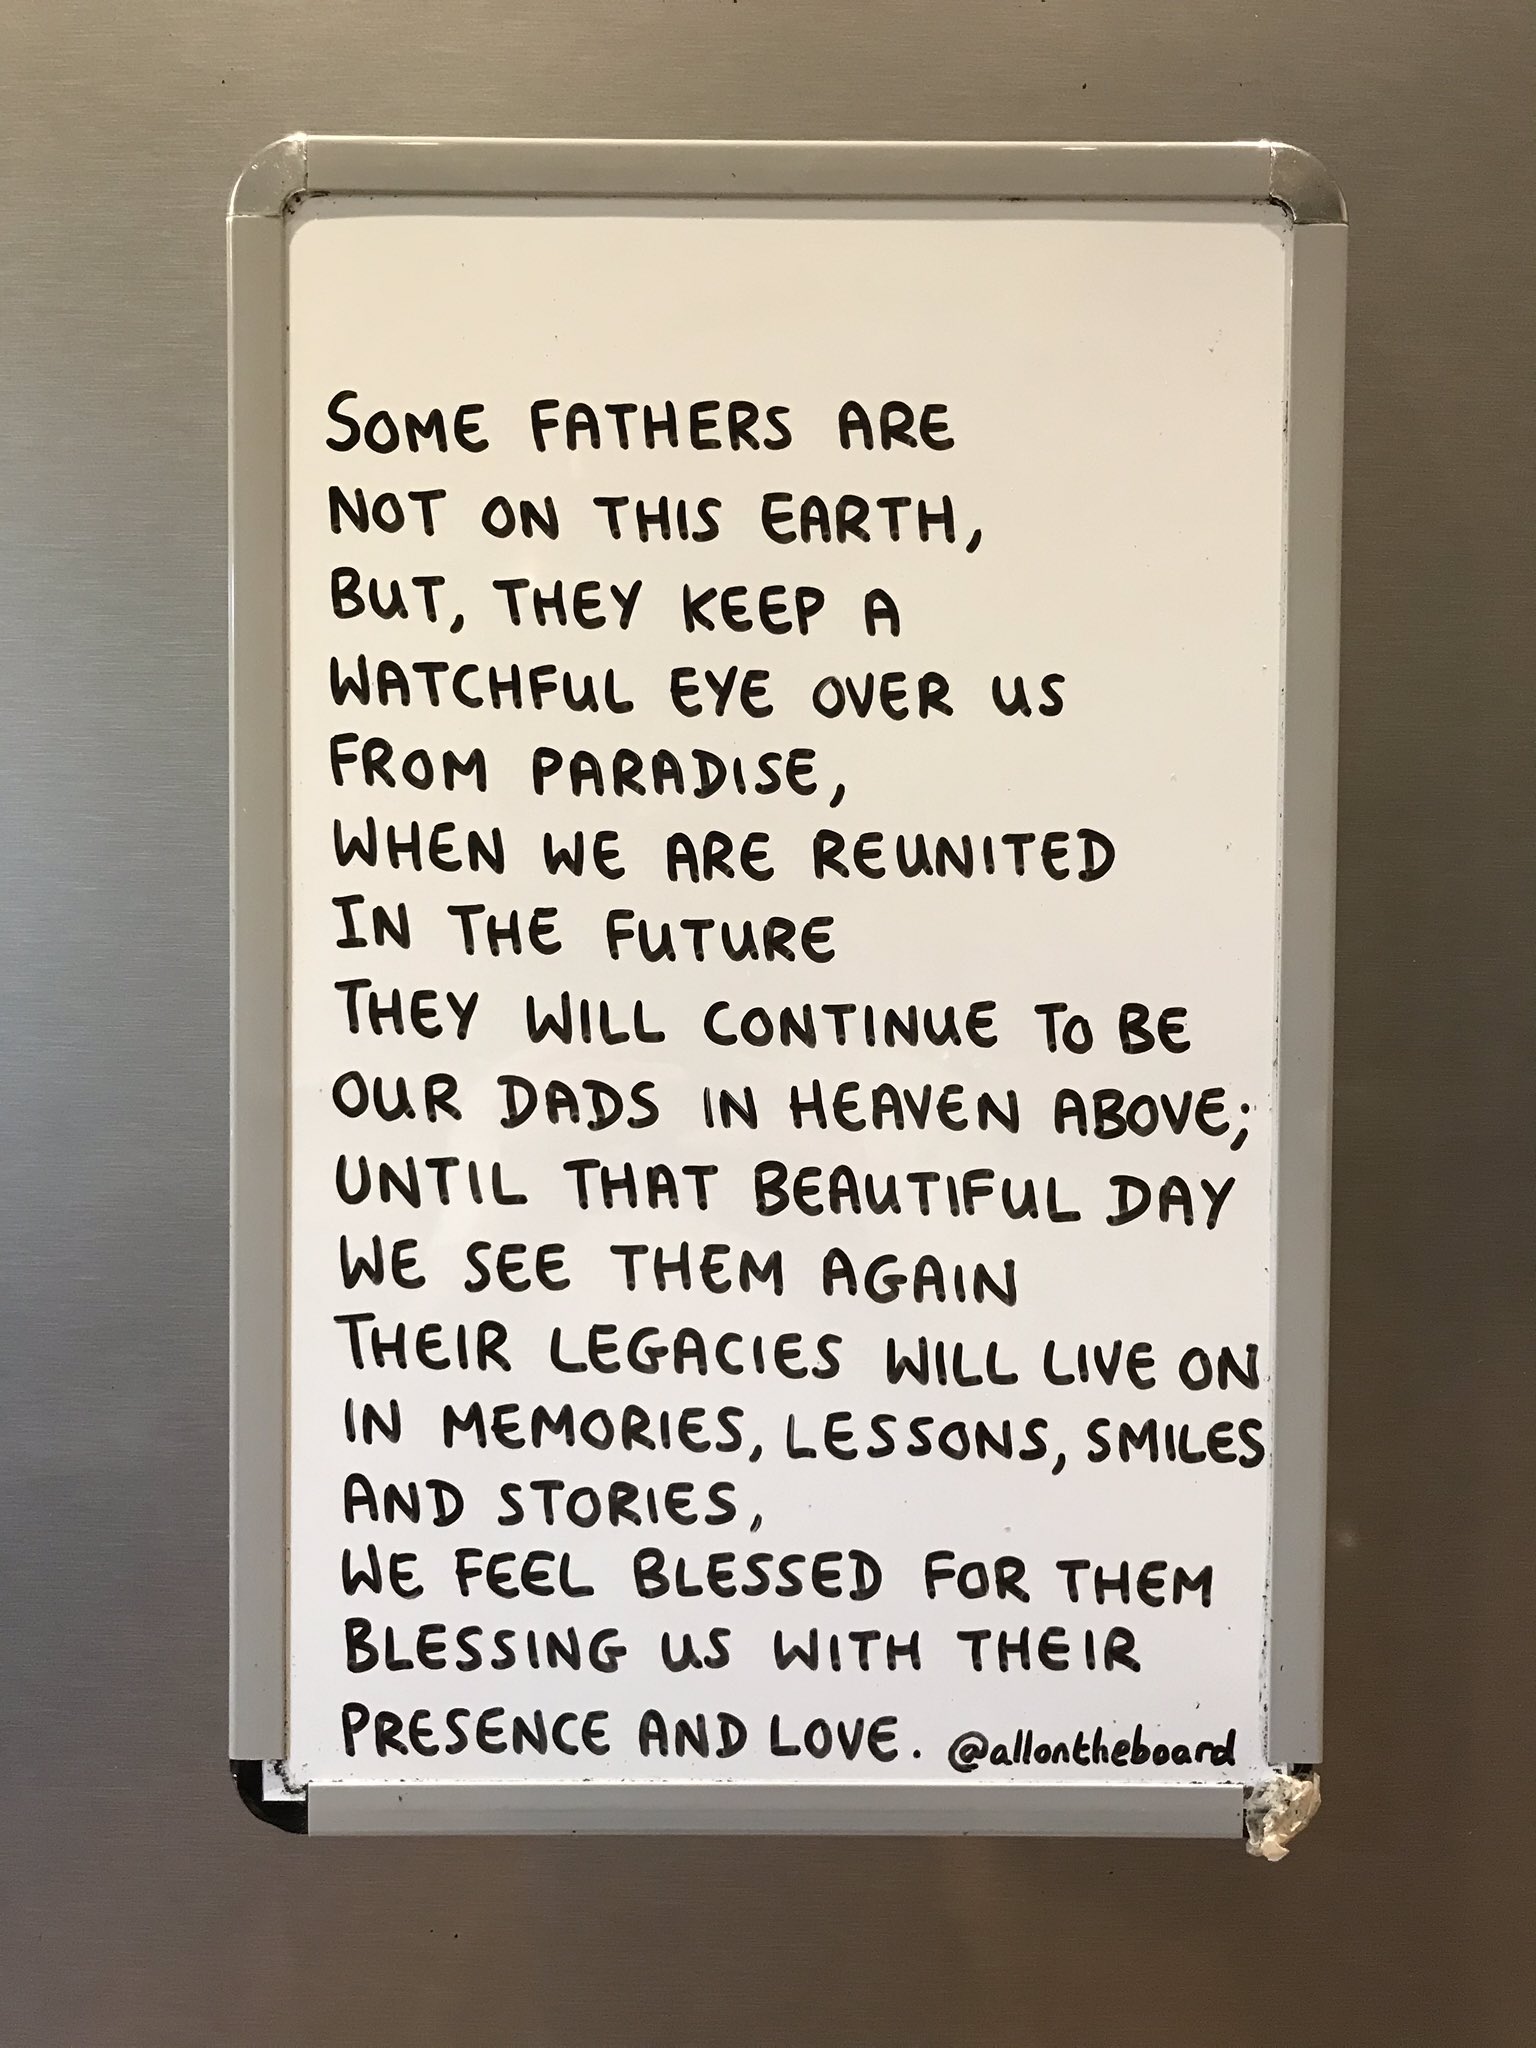 SOME FATHERS ARE
NOT ON THIS EARTH,
BUT, THEY KEEP A
WATCHFUL EYE OVER US
FROM PARADISE,
WHEN WE ARE REUNITED
IN THE FUTURE
THEY WILL CONTINUE TO BE
OUR DADS IN HEAVEN ABOVE;
UNTIL THAT BEAUTIFUL DAY
WE SEE THEM AGAIN
THEIR LEGACIES WILL LIVE ON
IN MEMORIES, LESSONS, SMILES
AND STORIES,
WE FEEL BLESSED FOR THEM
BLESSING US WITH THEIR
PRESENCE AND LOVE. @allontheboard